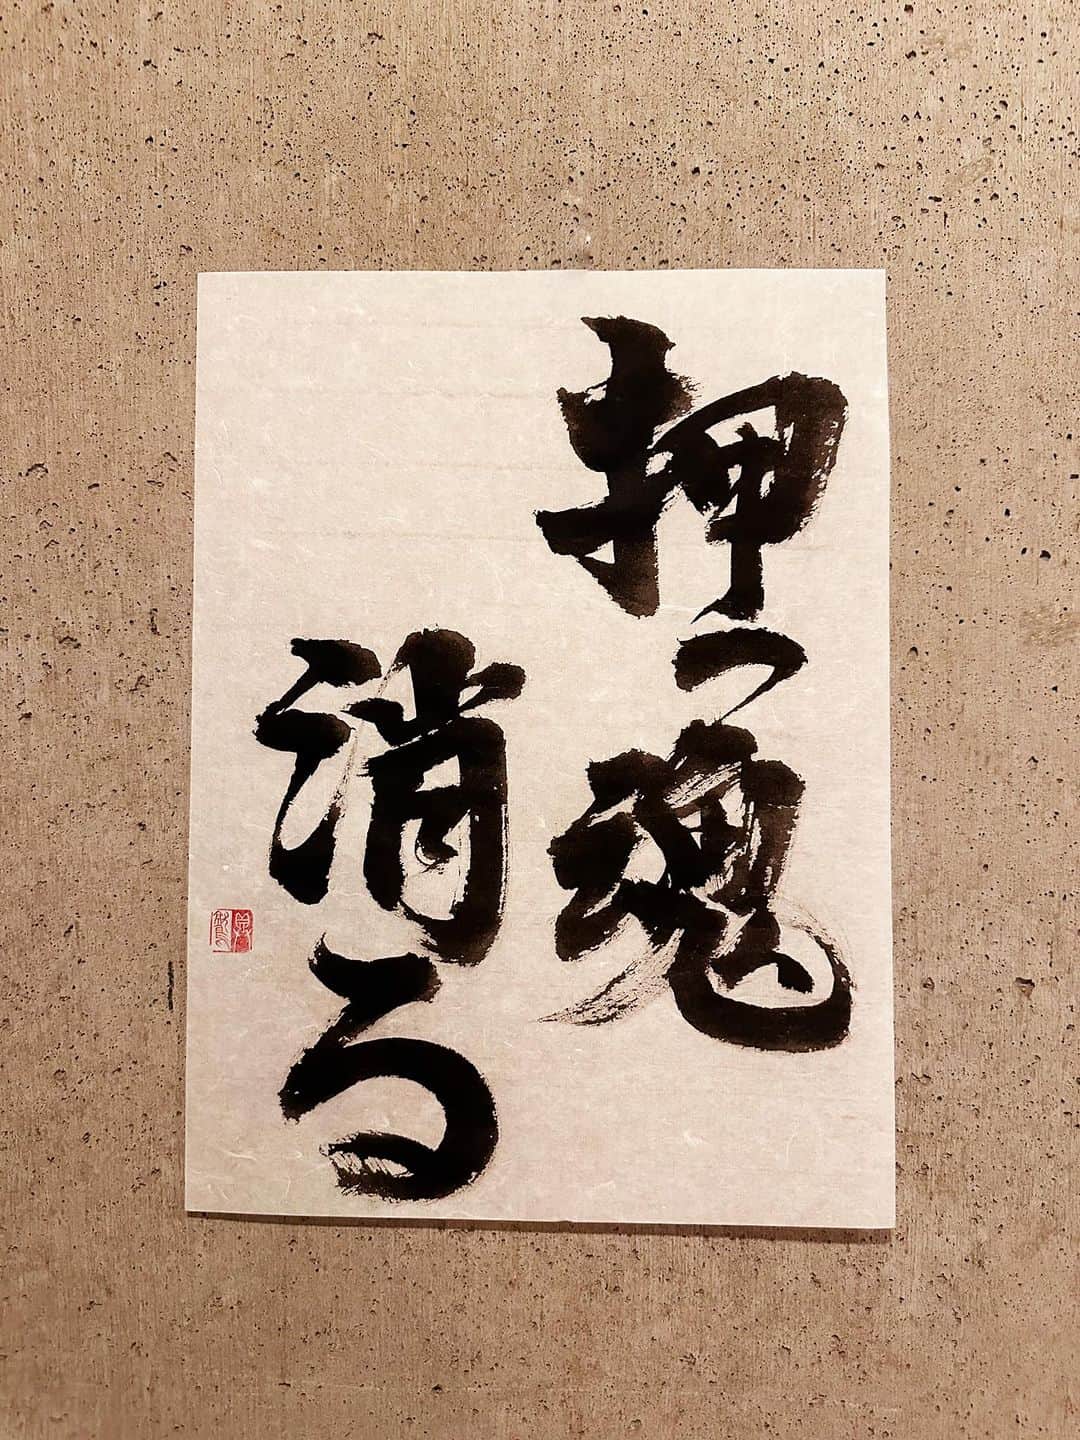 押っ魂
消る